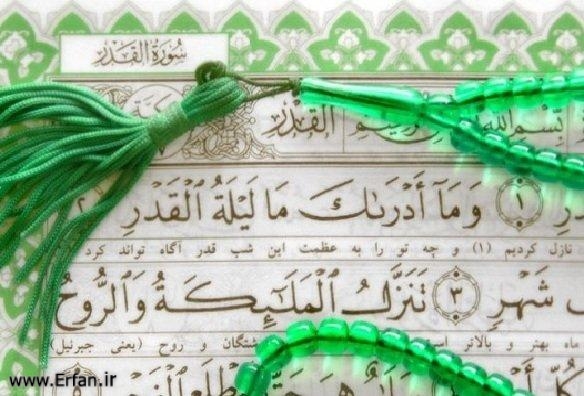 سُورَةُ الْقَدْرِ
الْقَدْرِ بِسْمِ اللهِ
١ وَمَآ أَدْرَىٰكَ مَا لَيْلَةُ الْقَدْرِ
نازل کردیم (۱) و چه تو را به عظمت این شب قدر آگاه تواند کرد
شَهْرٍ ٣ تَنَزَّلُ الْمَلَٰٓئِكَةُ وَالرُّوحُ
ماه بهتر و بالاتر و روح (یعنی جبرئیل)
كُلِّ مَطْلَعِ
www.Erfan.ir